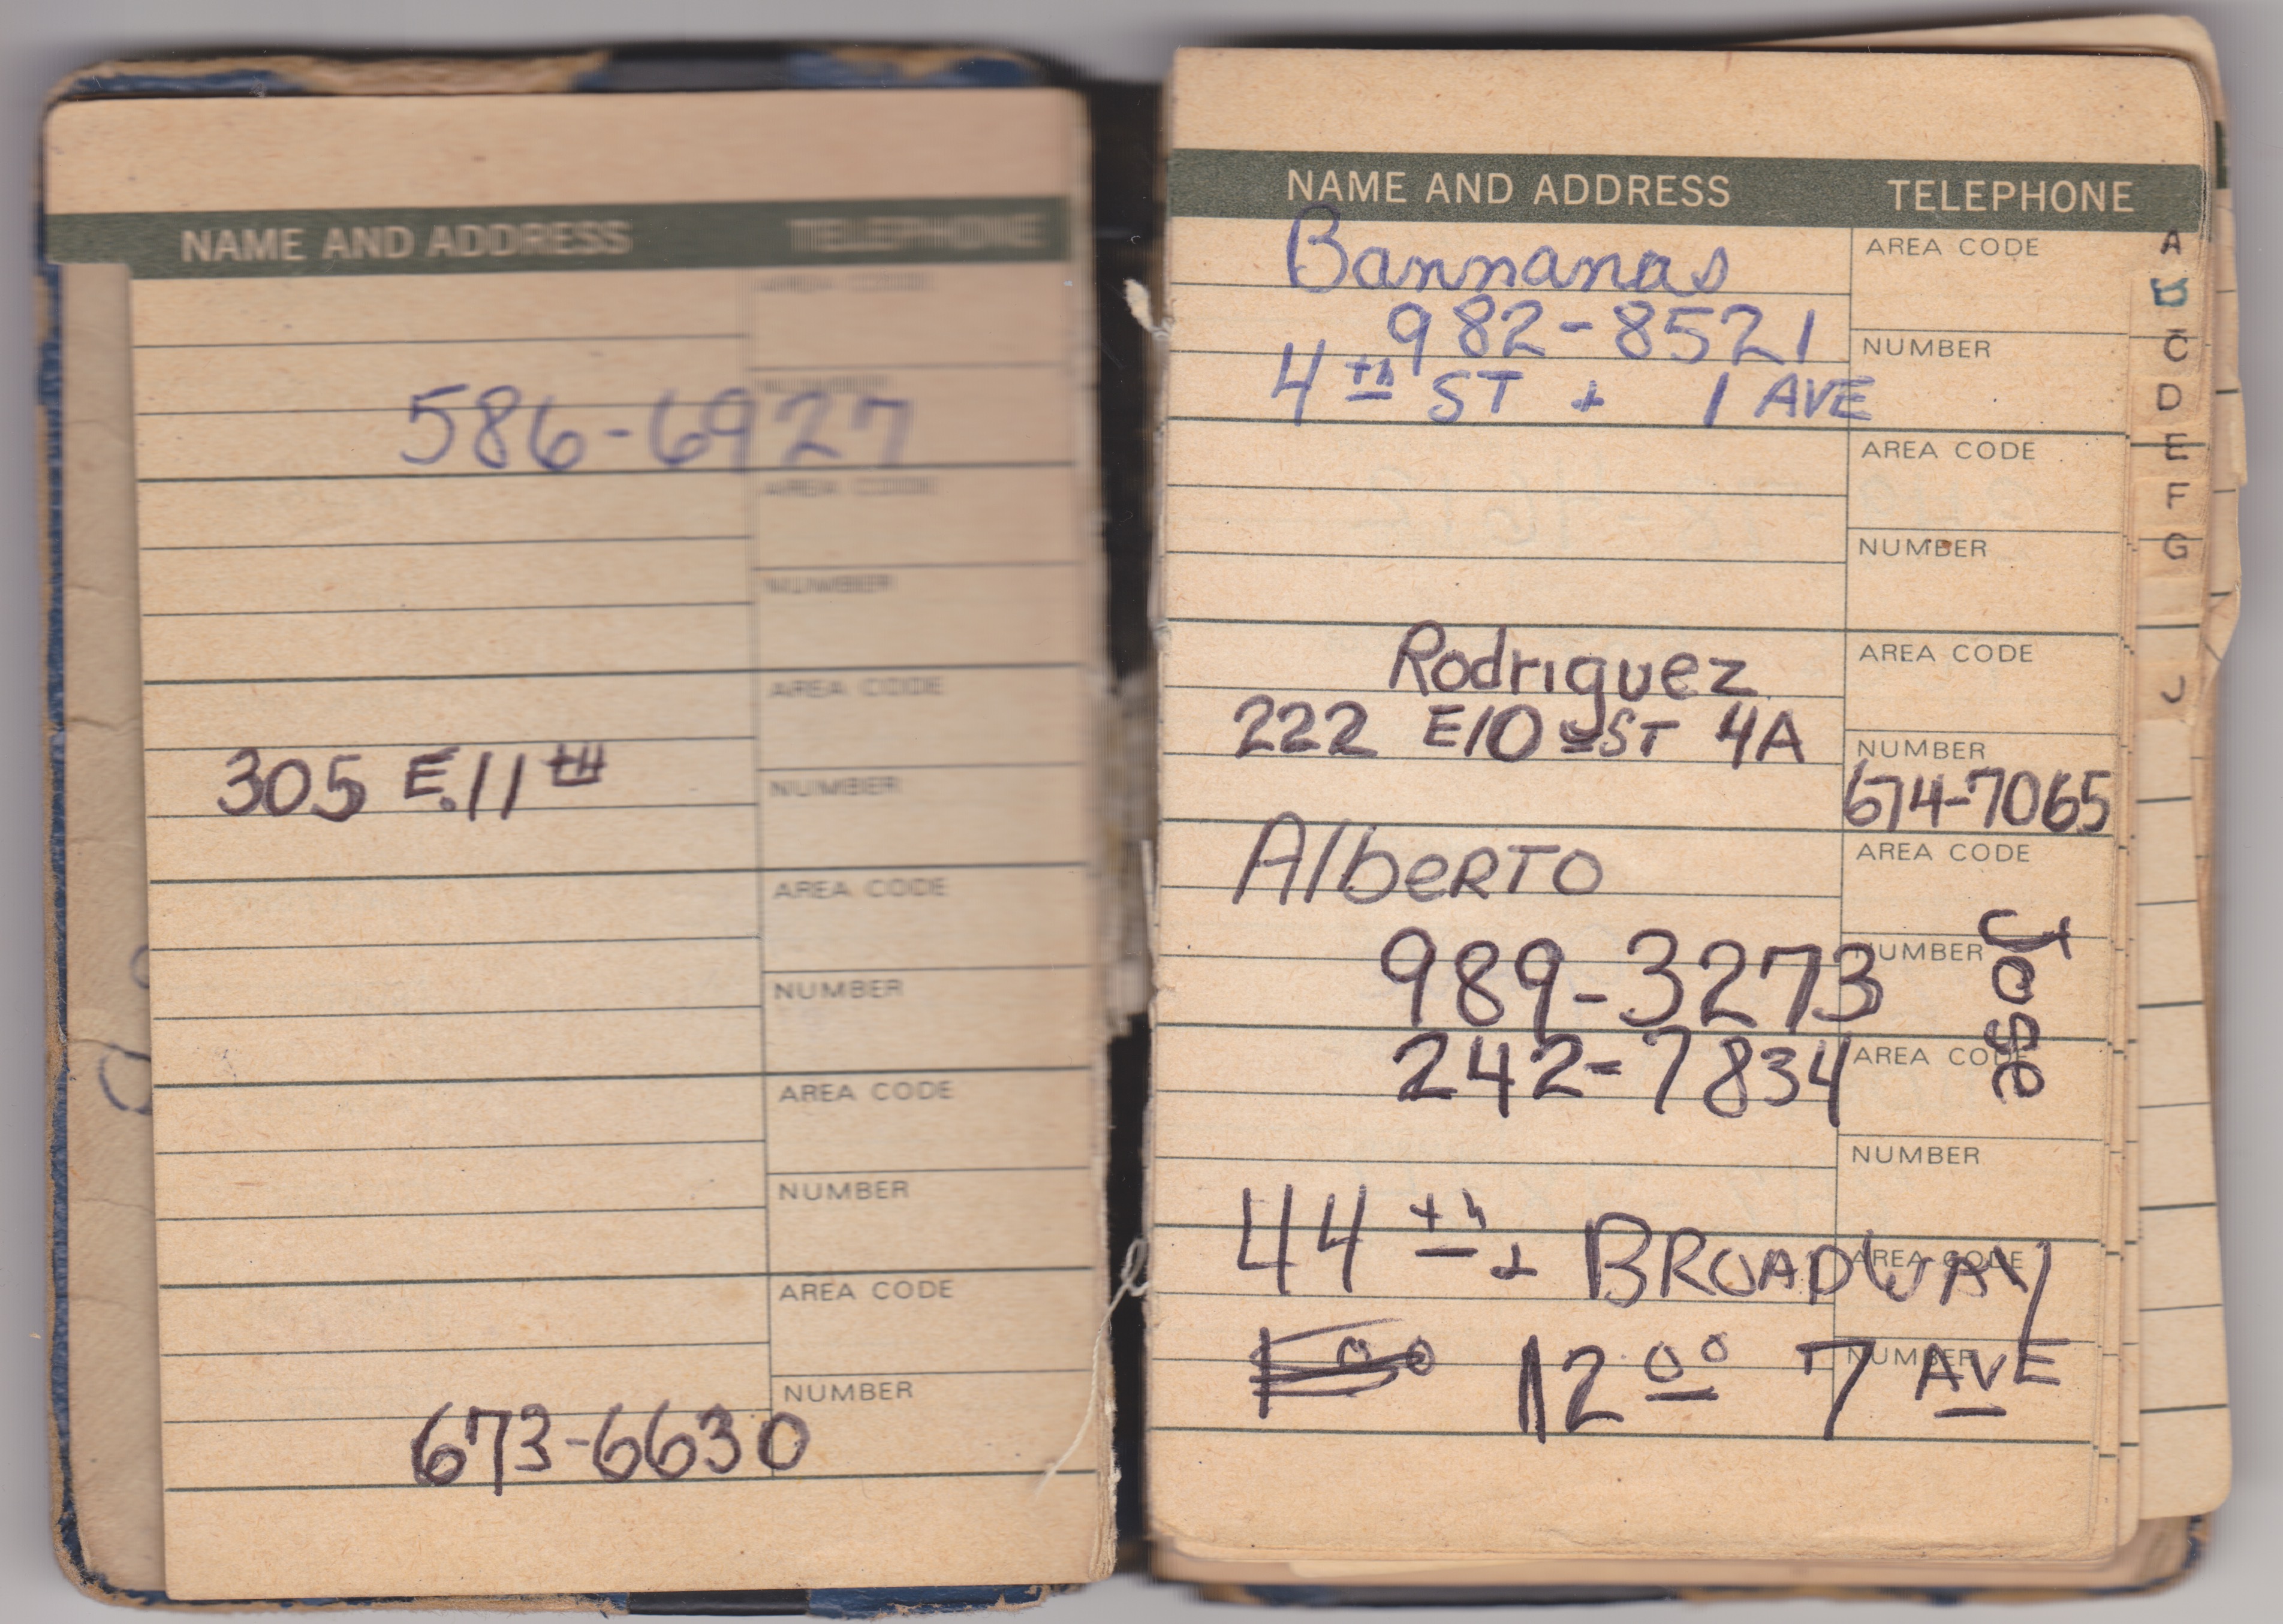 NAME AND ADDRESS TELEPHONE
AREA CODE
NUMBER
586-6927
AREA CODE
NUMBER
AREA CODE
305 E.11TH
NUMBER
AREA CODE
NUMBER
AREA CODE
NUMBER
AREA CODE
NUMBER
673-6630
NAME AND ADDRESS TELEPHONE
Bannanas
AREA CODE
982-8521
NUMBER
4th ST + 1 AVE
AREA CODE
NUMBER
Rodriguez
AREA CODE
222 E10 ST 4A
NUMBER
674-7065
AlbeRTO
AREA CODE
Jose
NUMBER
989-3273
242-7834
AREA CODE
NUMBER
44th + BROADWAY
AREA CODE
1200 7 AVE
NUMBER
A
B
C
D
E
F
G
J